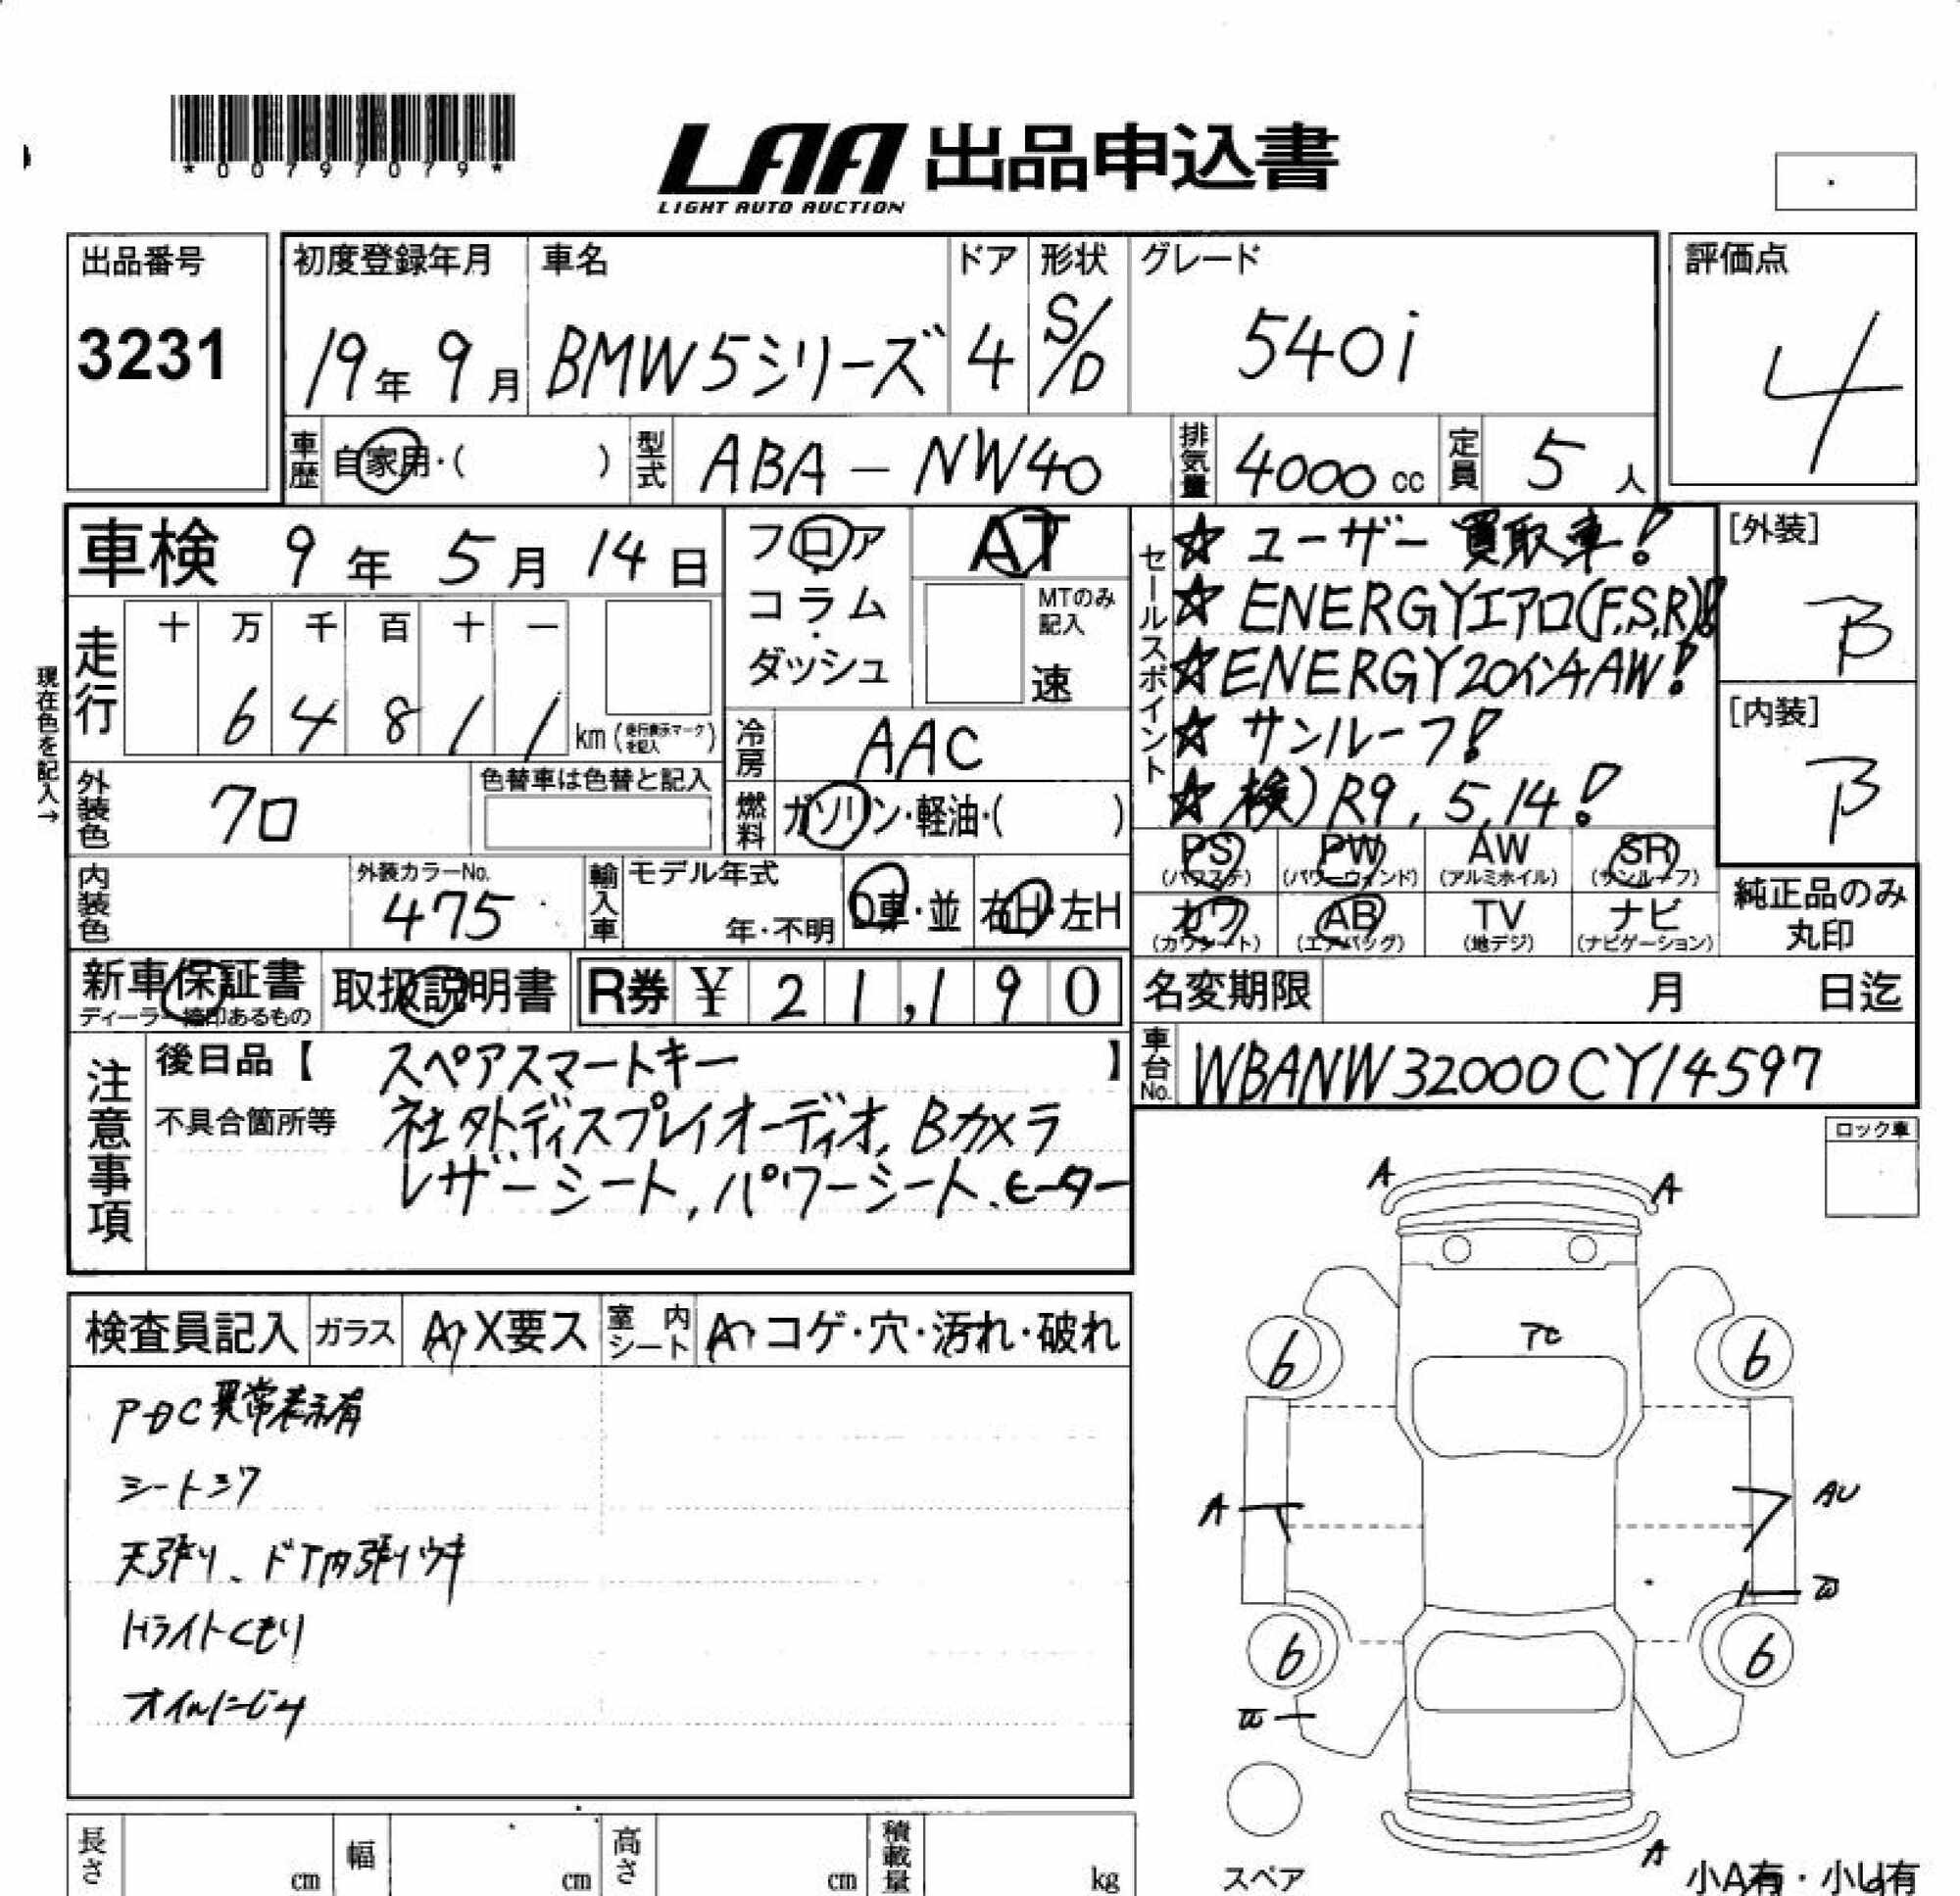 *00797079*
LAA 出品申込書
LIGHT AUTO AUCTION
出品番号
3231
初度登録年月
19年 9月
車名
BMW5シリーズ
ドア
4
形状
S/D
グレード
540i
評価点
4
車歴 自家用・( )
型式 ABA-NW40
排気量 4000 cc
定員 5 人
車検 9年 5月 14日
走行
十 万 千 百 十 一
6 4 8 1 1 km (走行表示マークを記入)
現在色を記入→
外装色 クロ
色替車は色替と記入
内装色
外装カラーNo.
475
輸入車
モデル年式
年・不明
D車・並
右H・左H
フロア・コラム・ダッシュ
AT
MTのみ記入
速
冷房 AAC
燃料 ガソリン・軽油・( )
セールスポイント
☆ ユーザー買取車!
☆ ENERGYエアロ(F,S,R)!
☆ ENERGY20インチAW!
☆ サンルーフ!
☆ 検)R9,5,14!
[外装]
B
[内装]
B
PS (パワステ)
PW (パワーウィンド)
AW (アルミホイル)
SR (サンルーフ)
カワ (カワシート)
AB (エアバッグ)
TV (地デジ)
ナビ (ナビゲーション)
純正品のみ丸印
新車保証書
ディーラー捺印あるもの
取扱説明書
R券 ¥ 21,190
名変期限 月 日迄
車台No. WBANW32000CY14597
注意事項
後日品【 スペアスマートキー 】
不具合箇所等 社外ディスプレイオーディオ,Bカメラ
レザーシート,パワーシート、ヒーター
ロック車
検査員記入
ガラス A,X要ス
室内シート A,コゲ・穴・汚れ・破れ
PDC異常表示有
シートシワ
天張り、ドア内張りウキ
Hライトくもり
オイルにじみ
A A
TC
6 6
A AU
6 6
A
スペア
小A有・小U有
長さ cm
幅 cm
高さ cm
積載量 kg